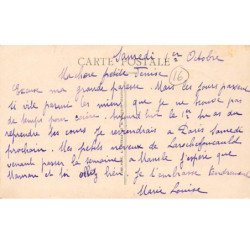 CARTE POSTALE
Samedi 1er Octobre
16
Ma chère petite Denise
Excuse ma grande paresse. Mais les jours passent
si vite parmi les miens que je ne trouve pas
de temps pour écrire. Aujourd'hui le 1er
reprendre les cours. Je reviendrais à Paris Samedi
prochain. Mes petits neveux de Larochefoucauld
venant passer la semaine à Mansle j'espère que
Maman et toi allez bien. Je t'embrasse tendrement
Marie Louise